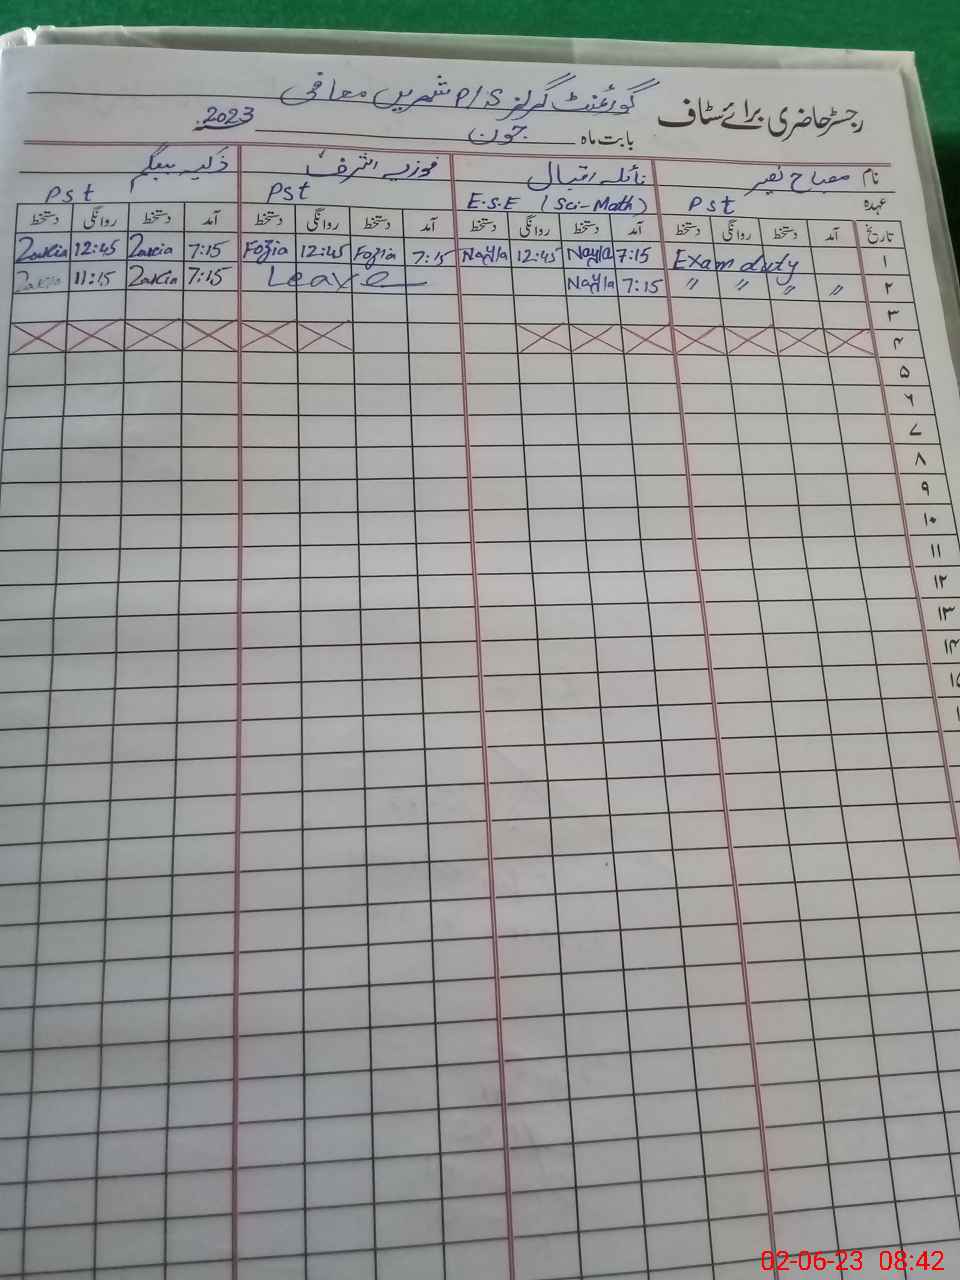 رجسٹر حاضری برائے سٹاف گورنمنٹ گرلز P/S شہریں معافی
بابت ماہ جون 2023
نام مصباح نصیر نائلہ اقبال فوزیہ اشرف ذکیہ بیگم
عہدہ Pst E.S.E (Sci-Math) Pst Pst
تاریخ آمد دستخط روانگی دستخط آمد دستخط روانگی دستخط آمد دستخط روانگی دستخط آمد دستخط روانگی دستخط
۱ Exam duty 7:15 Nayla 12:45 Nayla 7:15 Fozia 12:45 Fozia 7:15 Zakia 12:45 Zakia
۲ " " " " 7:15 Nayla Leave 7:15 Zakia 11:15 Zakia
۳
۴
۵
۶
۷
۸
۹
۱۰
۱۱
۱۲
۱۳
۱۴
۱۵
02-06-23 08:42